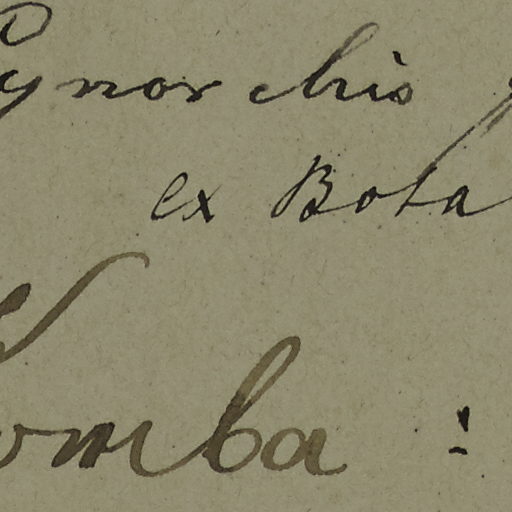 Cynorchis
ex Bota
omba :